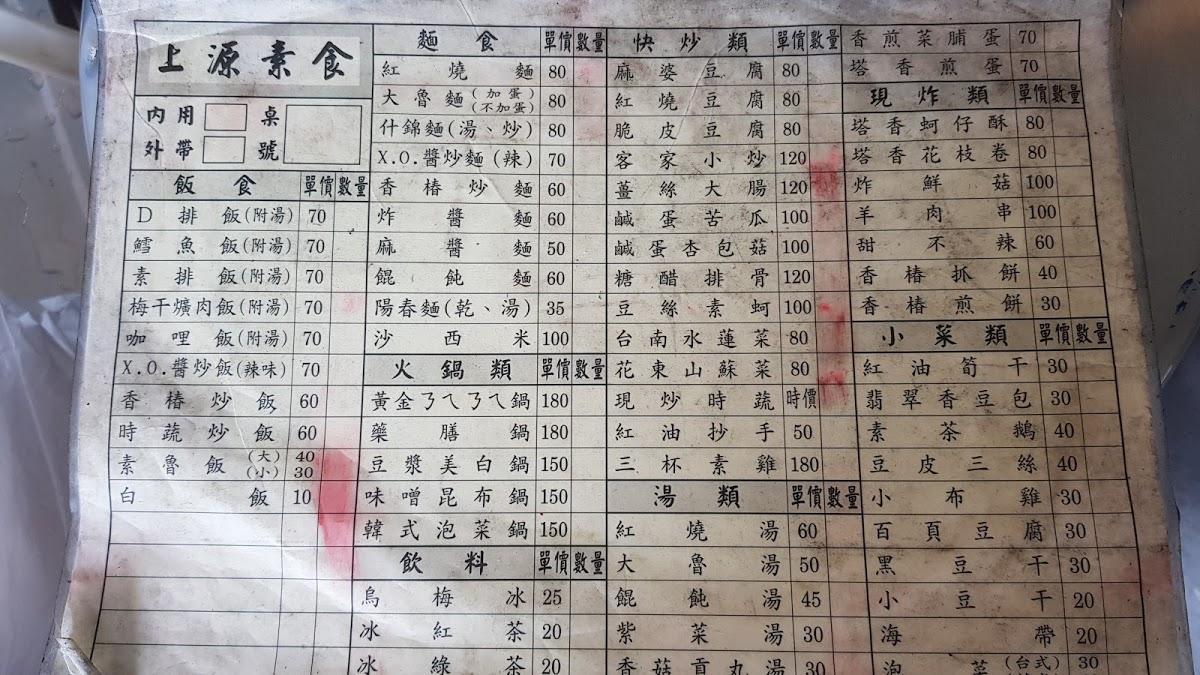 上源素食
內用 桌
外帶 號
飯食 單價 數量
D排飯(附湯) 70
鱈魚飯(附湯) 70
素排飯(附湯) 70
梅干爌肉飯(附湯) 70
咖哩飯(附湯) 70
X.O.醬炒飯(辣味) 70
香椿炒飯 60
時蔬炒飯 60
素魯飯(大) 40
(小) 30
白飯 10
麵食 單價 數量
紅燒麵 80
大魯麵(加蛋)(不加蛋) 80
什錦麵(湯、炒) 80
X.O.醬炒麵(辣) 70
香椿炒麵 60
炸醬麵 60
麻醬麵 50
餛飩麵 60
陽春麵(乾、湯) 35
沙西米 100
火鍋類 單價 數量
黃金ㄋㄟㄋㄟ鍋 180
藥膳鍋 180
豆漿美白鍋 150
味噌昆布鍋 150
韓式泡菜鍋 150
飲料 單價 數量
烏梅冰 25
冰紅茶 20
冰綠茶 20
快炒類 單價 數量
麻婆豆腐 80
紅燒豆腐 80
脆皮豆腐 80
客家小炒 120
薑絲大腸 120
鹹蛋苦瓜 100
鹹蛋杏包菇 100
糖醋排骨 120
豆絲素蚵 100
台南水蓮菜 80
花東山蘇菜 80
現炒時蔬 時價
紅油抄手 50
三杯素雞 180
湯類 單價 數量
紅燒湯 60
大魯湯 50
餛飩湯 45
紫菜湯 30
香菇貢丸湯 30
香煎菜脯蛋 70
塔香煎蛋 70
現炸類 單價 數量
塔香蚵仔酥 80
塔香花枝卷 80
炸鮮菇 100
羊肉串 100
甜不辣 60
香椿抓餅 40
香椿煎餅 30
小菜類 單價 數量
紅油筍干 30
翡翠香豆包 30
素茶鵝 40
豆皮三絲 40
小布雞 30
百頁豆腐 30
黑豆干 30
小豆干 20
海帶 20
泡菜(台式) 30